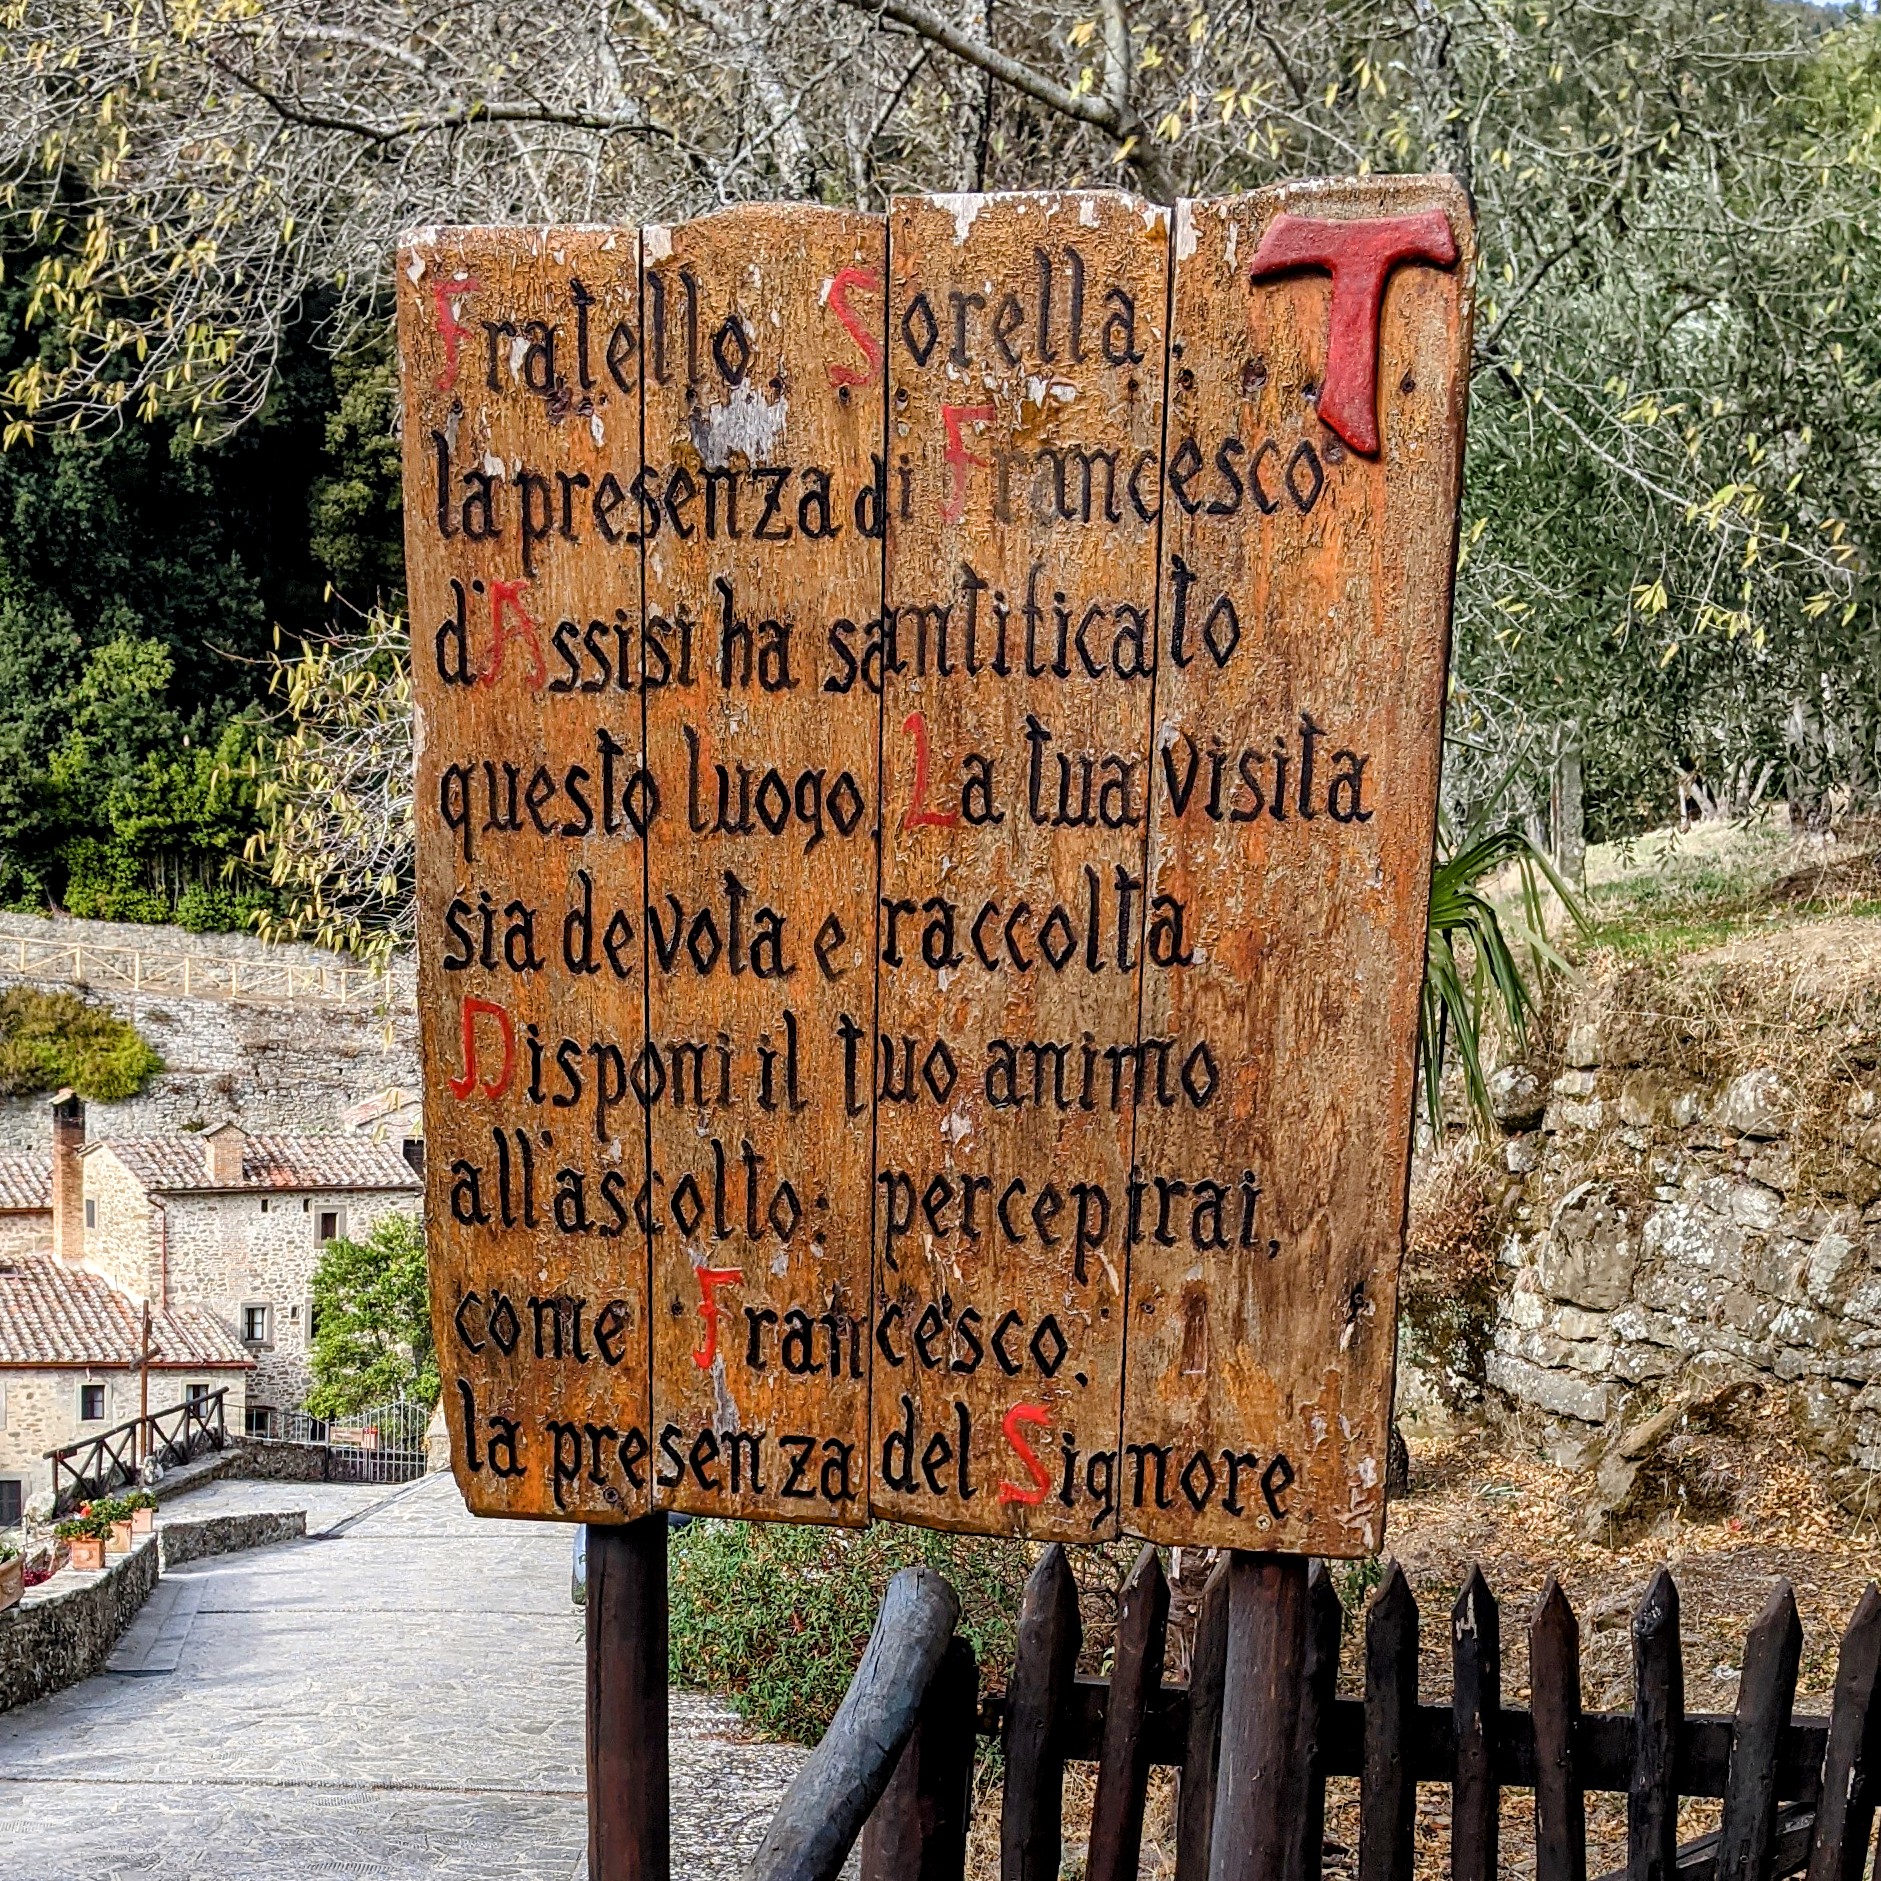 Fratello, Sorella,
la presenza di Francesco
d'Assisi ha santificato
questo luogo. La tua visita
sia devota e raccolta
Disponi il tuo animo
all'ascolto: percepirai,
come Francesco,
la presenza del Signore